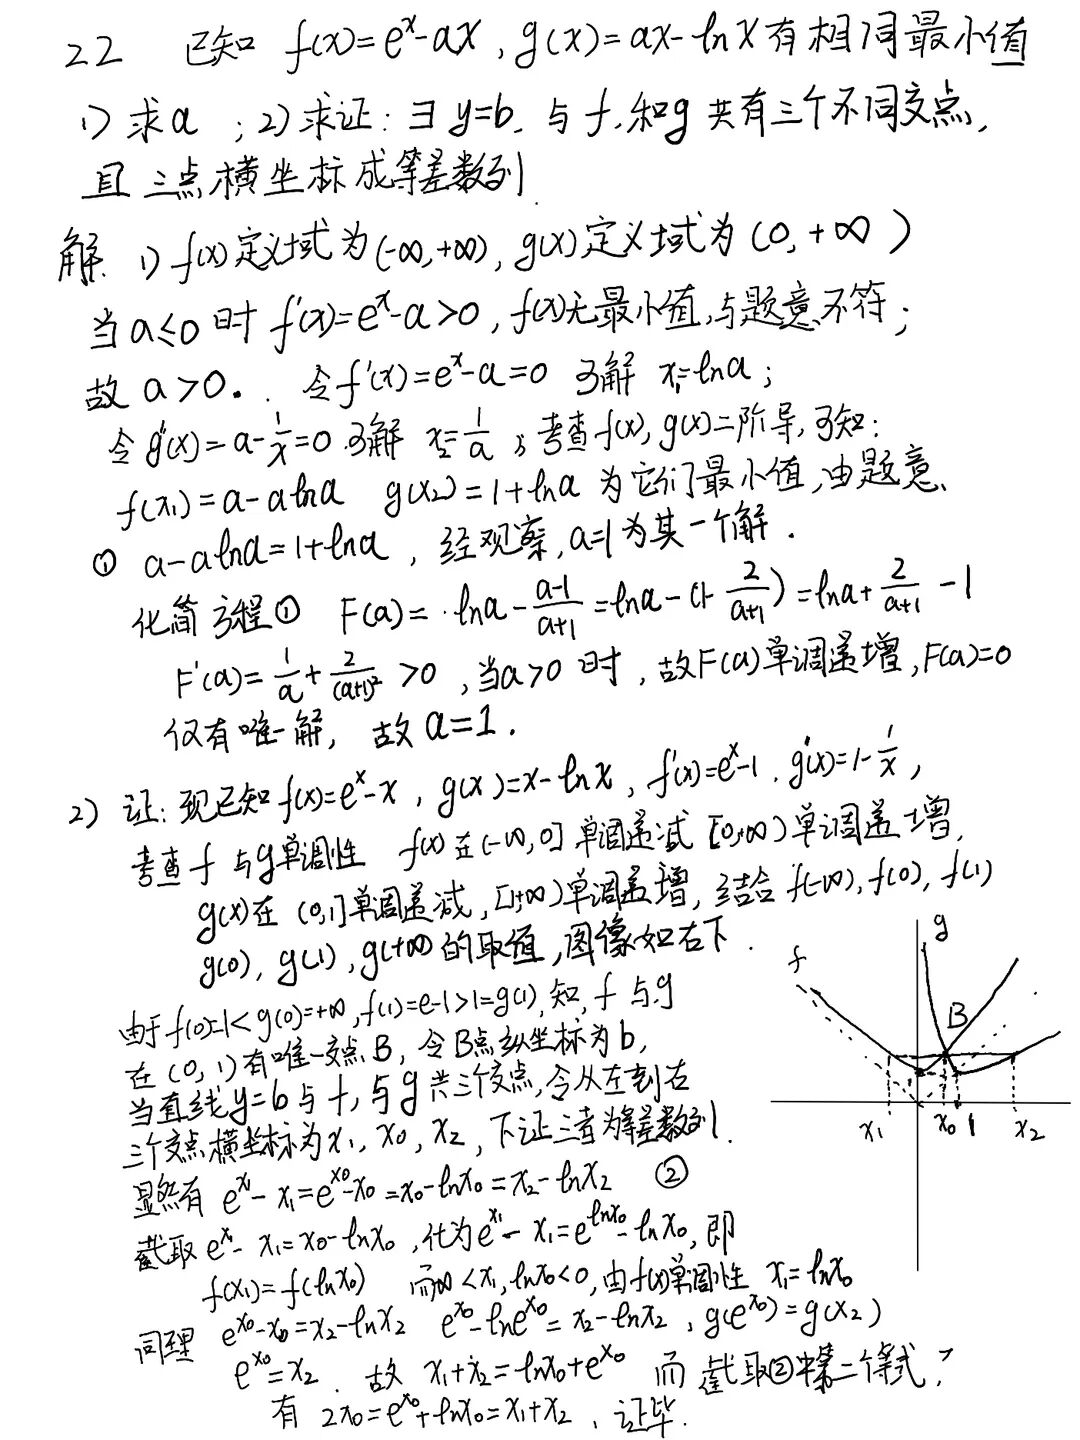 22 已知 f(x)=e^x-ax, g(x)=ax-lnx有相同最小值
1) 求a ; 2) 求证: ∃ y=b, 与f,和g共有三个不同交点,
且三点横坐标成等差数列.
解. 1) f(x)定义域为(-∞,+∞), g(x)定义域为(0,+∞)
当a≤0时 f'(x)=e^x-a>0, f(x)无最小值,与题意不符;
故 a>0. 令f'(x)=e^x-a=0 可解 x₁=lna;
令g'(x)=a-1/x=0 可解 x₂=1/a; 考查f(x), g(x)二阶导,可知:
f(x₁)=a-alna g(x₂)=1+lna 为它们最小值,由题意、
① a-alna=1+lna, 经观察,a=1为其一个解.
化简方程① F(a)=lna-(a-1)/(a+1)=lna-(1-2/(a+1))=lna+2/(a+1)-1
F'(a)=1/a+2/(a+1)²>0, 当a>0时, 故F(a)单调递增,F(a)=0
仅有唯一解, 故a=1.
2) 证: 现已知f(x)=e^x-x, g(x)=x-lnx, f'(x)=e^x-1. g'(x)=1-1/x,
考查f与g单调性 f(x)在(-∞,0]单调递减 [0,+∞)单调递增,
g(x)在(0,1]单调递减, [1,+∞)单调递增, 结合f(-∞), f(0), f(1)
g(0), g(1), g(+∞)的取值, 图像如右下.
由于f(0)=1<g(0)=+∞, f(1)=e-1>1=g(1), 知, f与g
在(0,1)有唯一交点B, 令B点纵坐标为b,
当直线y=b与f,与g共三个交点,令从左到右
三个交点横坐标为x₁, x₀, x₂, 下证三者为等差数列.
显然有 e^x₁-x₁=e^x₀-x₀=x₀-lnx₀=x₂-lnx₂ ②
截取e^x₁-x₁=x₀-lnx₀, 化为e^x₁-x₁=e^lnx₀-lnx₀, 即
f(x₁)=f(lnx₀) 而-∞<x₁,lnx₀<0, 由f(x)单调性 x₁=lnx₀
同理 e^x₀-x₀=x₂-lnx₂ e^x₀-lne^x₀=x₂-lnx₂, g(e^x₀)=g(x₂)
e^x₀=x₂. 故 x₁+x₂=lnx₀+e^x₀ 而截取②中第二个等式,
有 2x₀=e^x₀+lnx₀=x₁+x₂, 证毕.
f
g
B
x₁
x₀
1
x₂